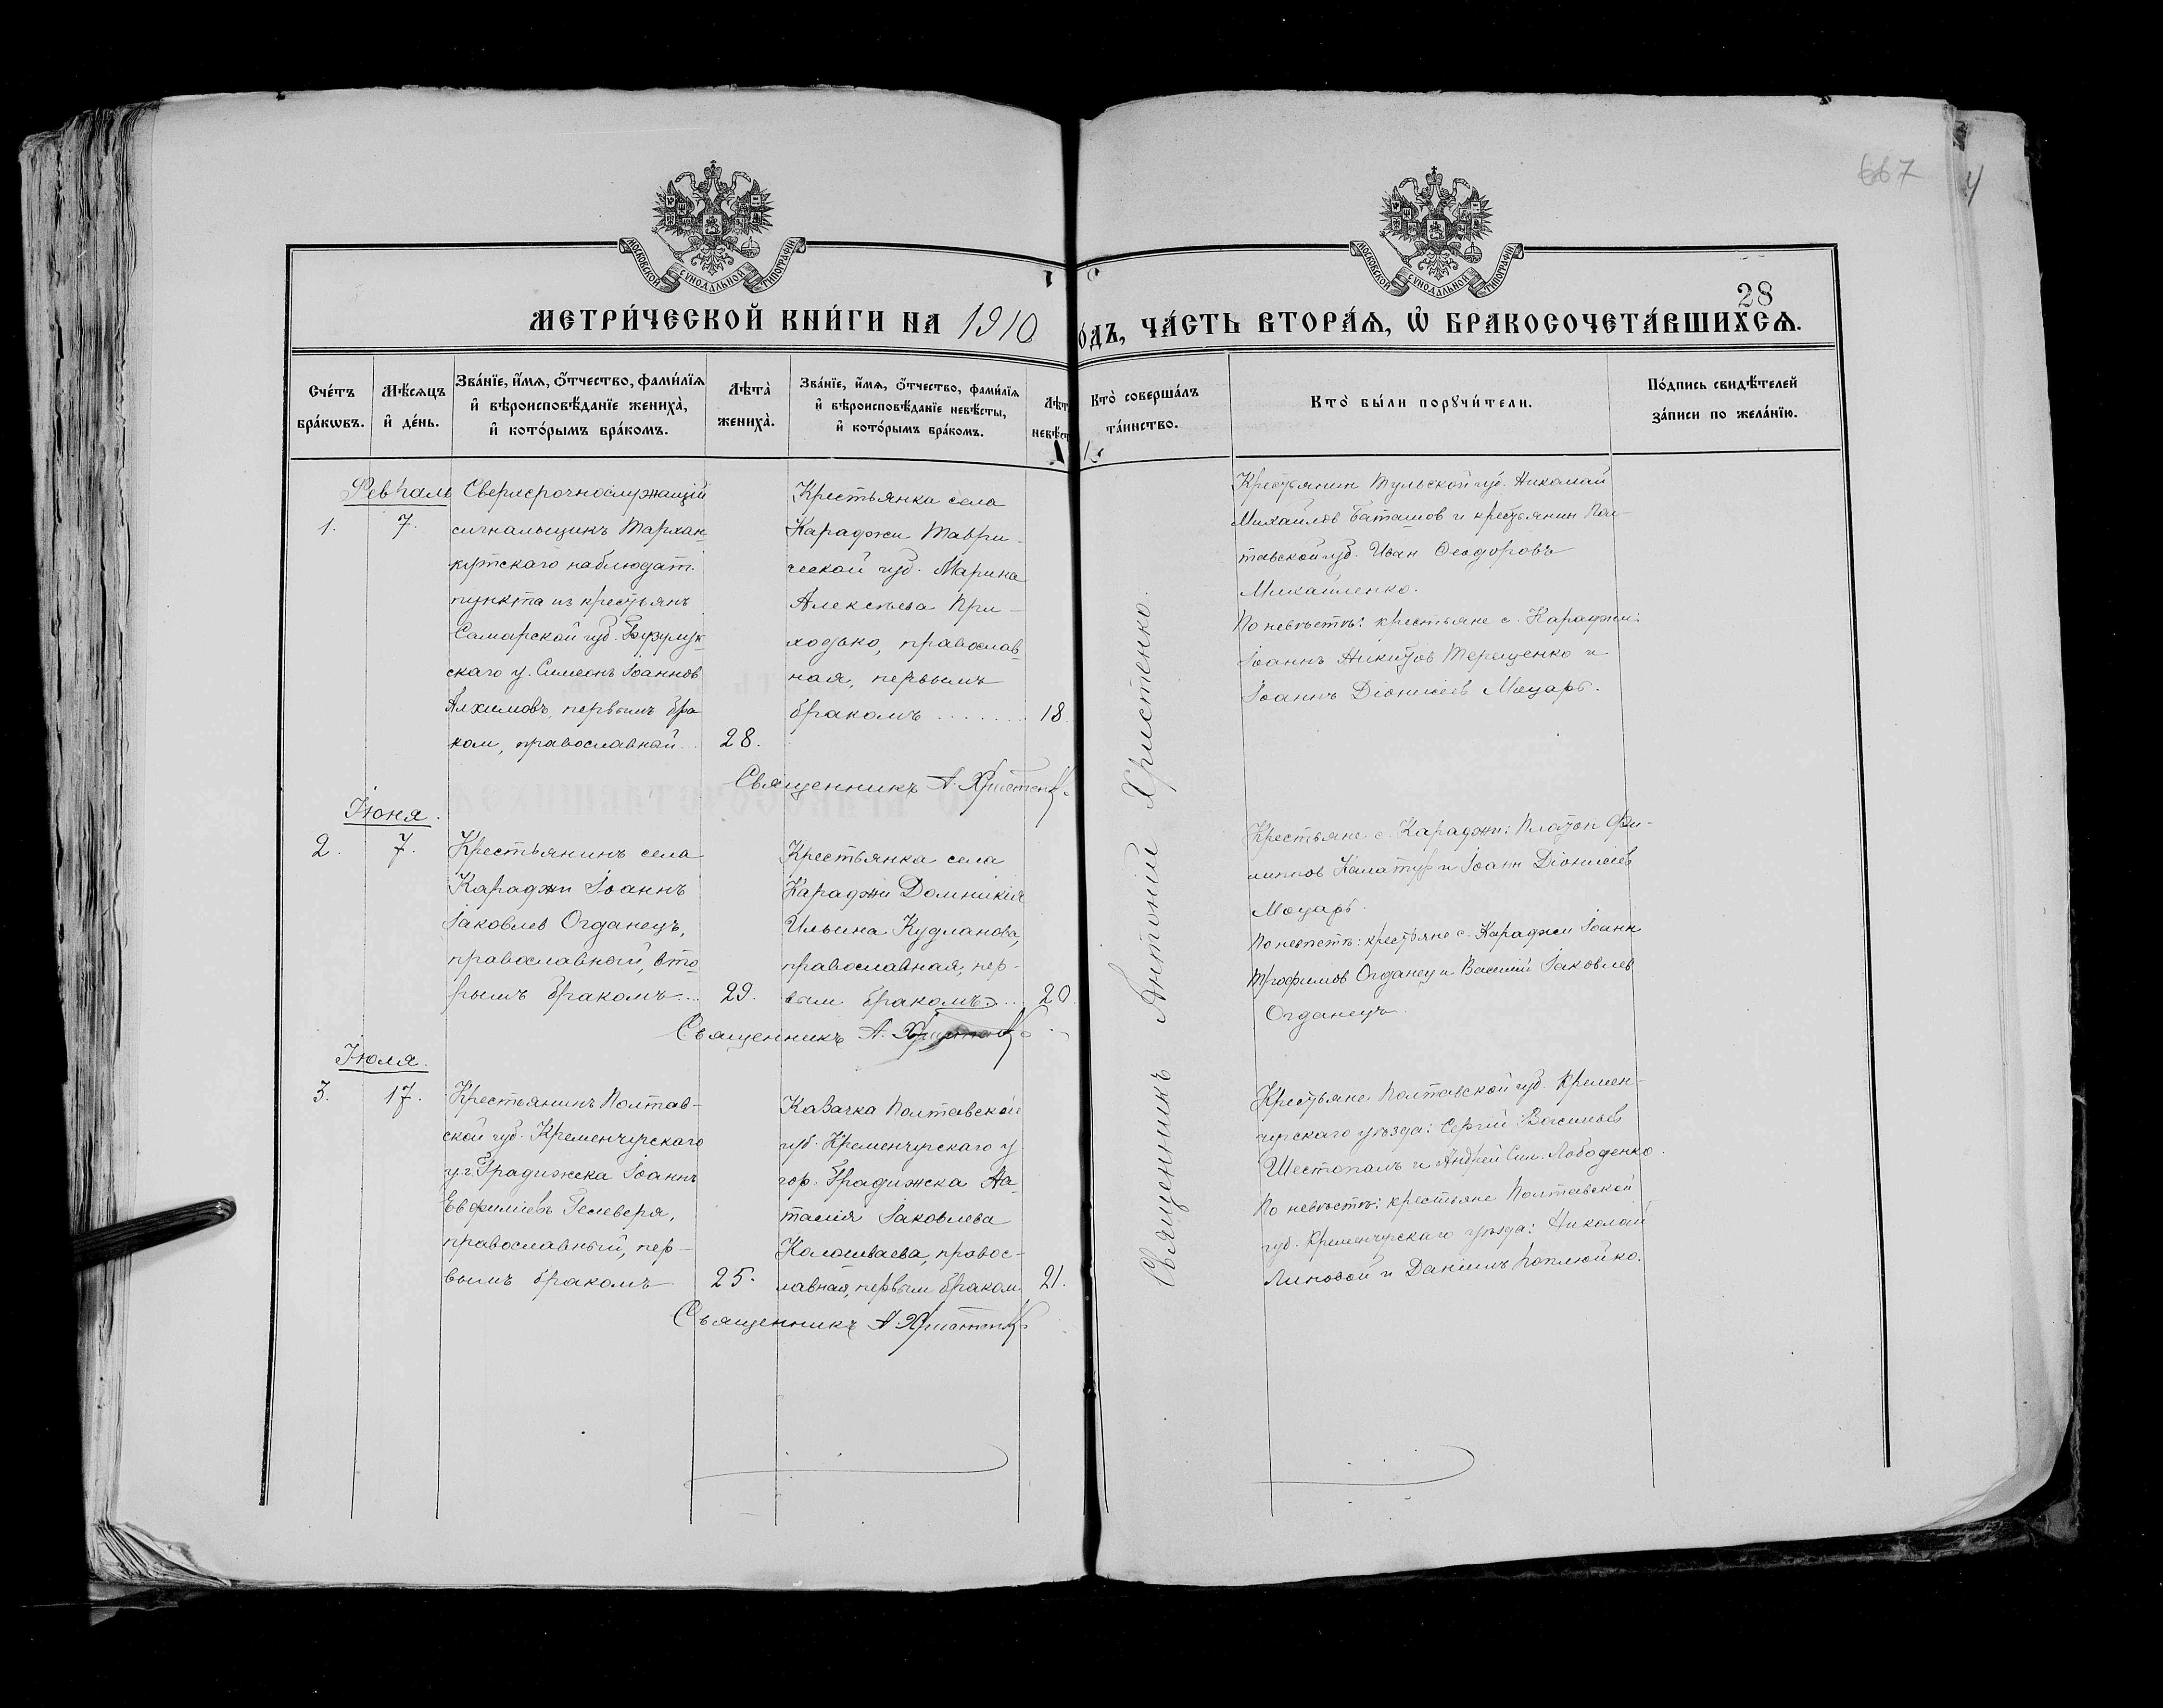 667
4
МОСКОВСКОЙ СУНОДАЛЬНОЙ ТИПОГРАФІИ
МОСКОВСКОЙ СУНОДАЛЬНОЙ ТИПОГРАФІИ
28
МЕТРИ́ЧЕСКОЙ КНИ́ГИ НА 1910
О́ДЪ, ЧА́СТЬ ВТОРА́Я, Ѡ҆ БРАКОСОЧЕТА́ВШИХСЯ.
Сче́тъ
бра́кѡвъ.
Мѣ́сяцъ
и҆ де́нь.
Зва́нїе, и҆́мѧ, ѻ҆́тчество, фами́лїѧ
и҆ вѣроисповѣ́данїе жениха̀,
и҆ кото́рымъ бра́комъ.
Лѣта̀
жениха̀.
Зва́нїе, и҆́мѧ, ѻ҆́тчество, фами́лїѧ
и҆ вѣроисповѣ́данїе невѣ́сты,
и҆ кото́рымъ бра́комъ.
Лѣт
невѣ́ст
Кто̀ соверша́лъ
та́инство.
Кто̀ бы́ли порꙋчи́тели.
По́дпись свидѣ́телей
за́писи по жела́нїю.
Февраль
1.
7.
Сверхсрочнослужащій
сигнальщикъ Тархан-
кутскаго наблюдат.
пункта из крестьянъ
Самарской губ. Бузулук-
скаго у. Симеонъ Іоаннов
Алхимовъ, первымъ бра
ком, православный...
28.
Крестьянка села
Караджи Таври-
ческой губ. Марина
Алексѣева При-
ходько, православ-
ная, первымъ
бракомъ ........
18.
Священникъ А. Христенко
Священникъ Антоній Христенко.
Крестьянин Тульской губ. Николай
Михайлов Баташов и крестьянин Пол-
тавской губ. Иван Феодоровъ
Михайленко.
По невѣстѣ: крестьяне с. Караджи:
Іоаннъ Никитов Терещенко и
Іоаннъ Діонисіев Моцарь.
Іюня.
2.
7.
Крестьянинъ села
Караджи Іоаннъ
Іаковлев Огданецъ,
православный, вто-
рымъ бракомъ...
29.
Крестьянка села
Караджи Домникія
Ильина Кудланова,
православная, пер-
вым бракомъ...
20.
Священникъ А. Христенко
Крестьяне с. Караджи: Платон Фи-
липпов Калатур и Іоанн Діонисіев
Моцарь.
По невѣстѣ: крестьяне с. Караджи Іоанн
Трофимов Огданец и Василій Іаковлев
Огданецъ
Іюля.
3.
17.
Крестьянинъ Полтав-
ской губ. Кременчугскаго
у. г. Градижска Іоаннъ
Евфиміевъ Гелеверя,
православный, пер-
вымъ бракомъ
25.
Казачка Полтавской
губ. Кременчугскаго у
гор. Градижска На-
талія Іаковлева
правос-
лавная, первым браком
21.
Священникъ А. Христенко
Крестьяне Полтавской губ. Кремен-
чугскаго уѣзда: Сергій Васильев
Шестопалъ и Андрей Сим. Лободенко.
По невѣстѣ: крестьяне Полтавской
губ. Кременчугскаго уѣзда: Николай
Липовой и Даніилъ